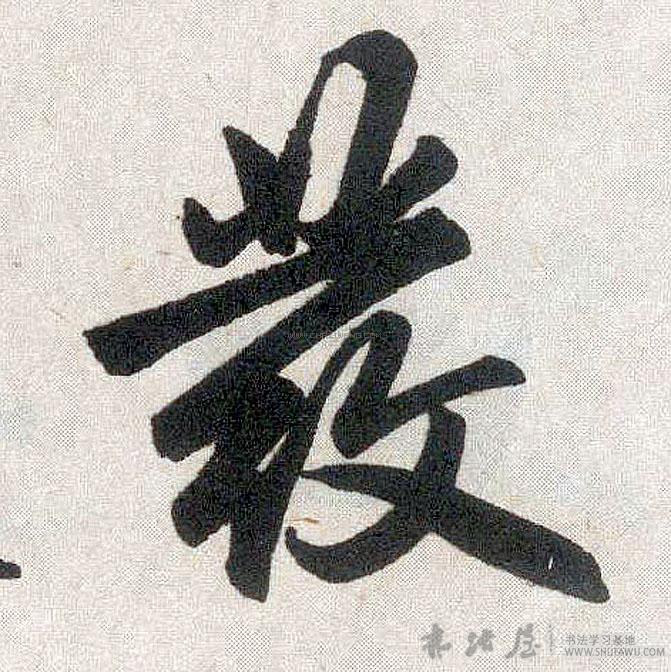 叢
书法屋 书法学习基地
WWW.SHUFAWU.COM